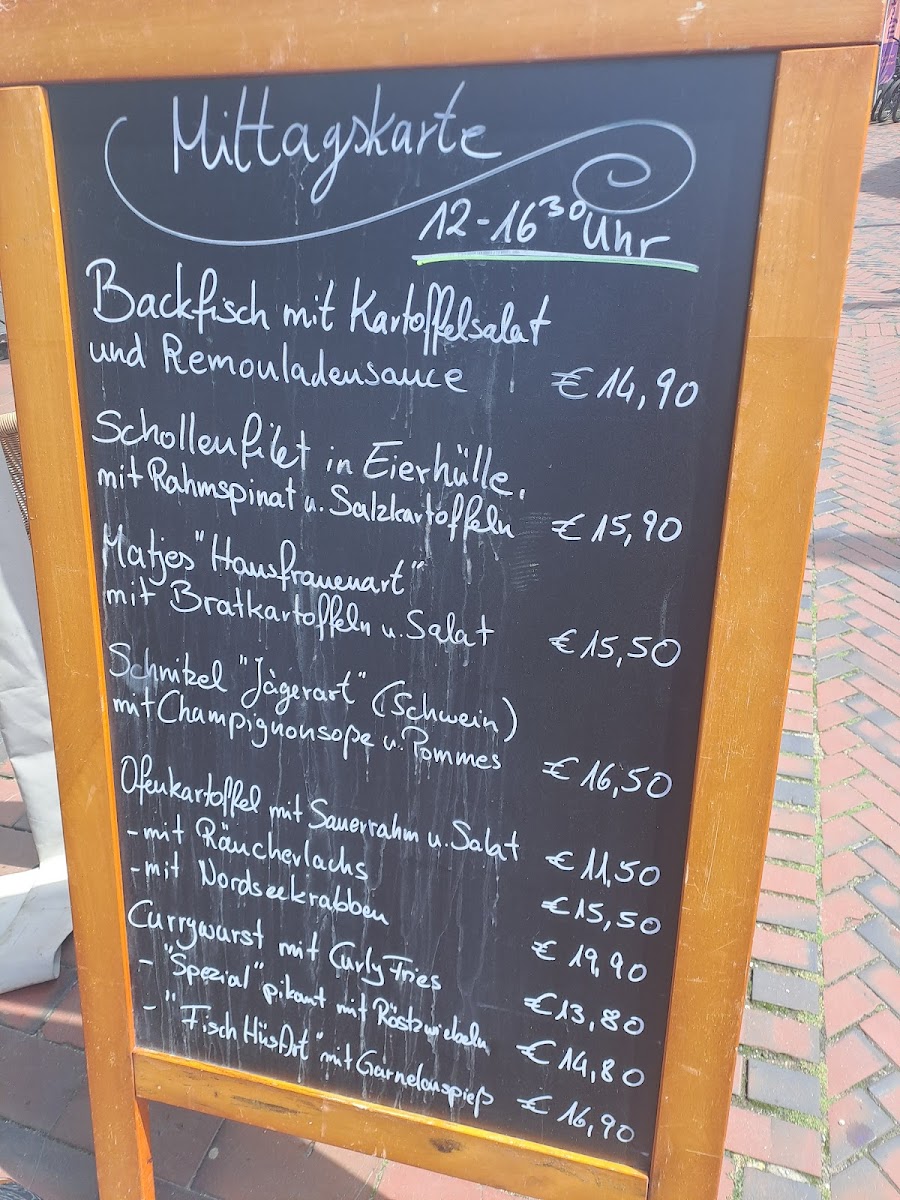 Mittagskarte
12-16³⁰ Uhr
Backfisch mit Kartoffelsalat
und Remouladensauce € 14,90
Schollenfilet in Eierhülle,
mit Rahmspinat u. Salzkartoffeln € 15,90
Matjes "Hausfrauenart"
mit Bratkartoffeln u. Salat € 15,50
Schnitzel "Jägerart" (Schwein)
mit Champignonsoße u. Pommes € 16,50
Ofenkartoffel mit Sauerrahm u. Salat € 11,50
- mit Räucherlachs € 15,50
- mit Nordseekrabben € 19,90
Currywurst mit Curly Fries € 13,80
- "Spezial" pikant mit Röstzwiebeln € 14,80
- "Fisch HüsArt" mit Garnelenspieß € 16,90